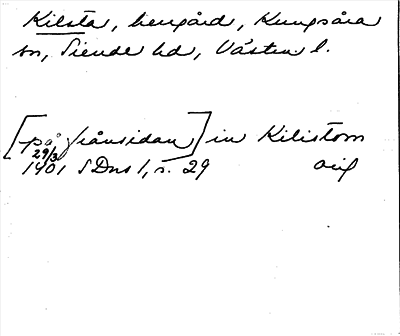 Kilsta, herrgård, Kungsåra
sn, Siende hd, Västm l.
[på frånsidan] in Kilistom
29/3
1401 SDns 1, s. 29 orig